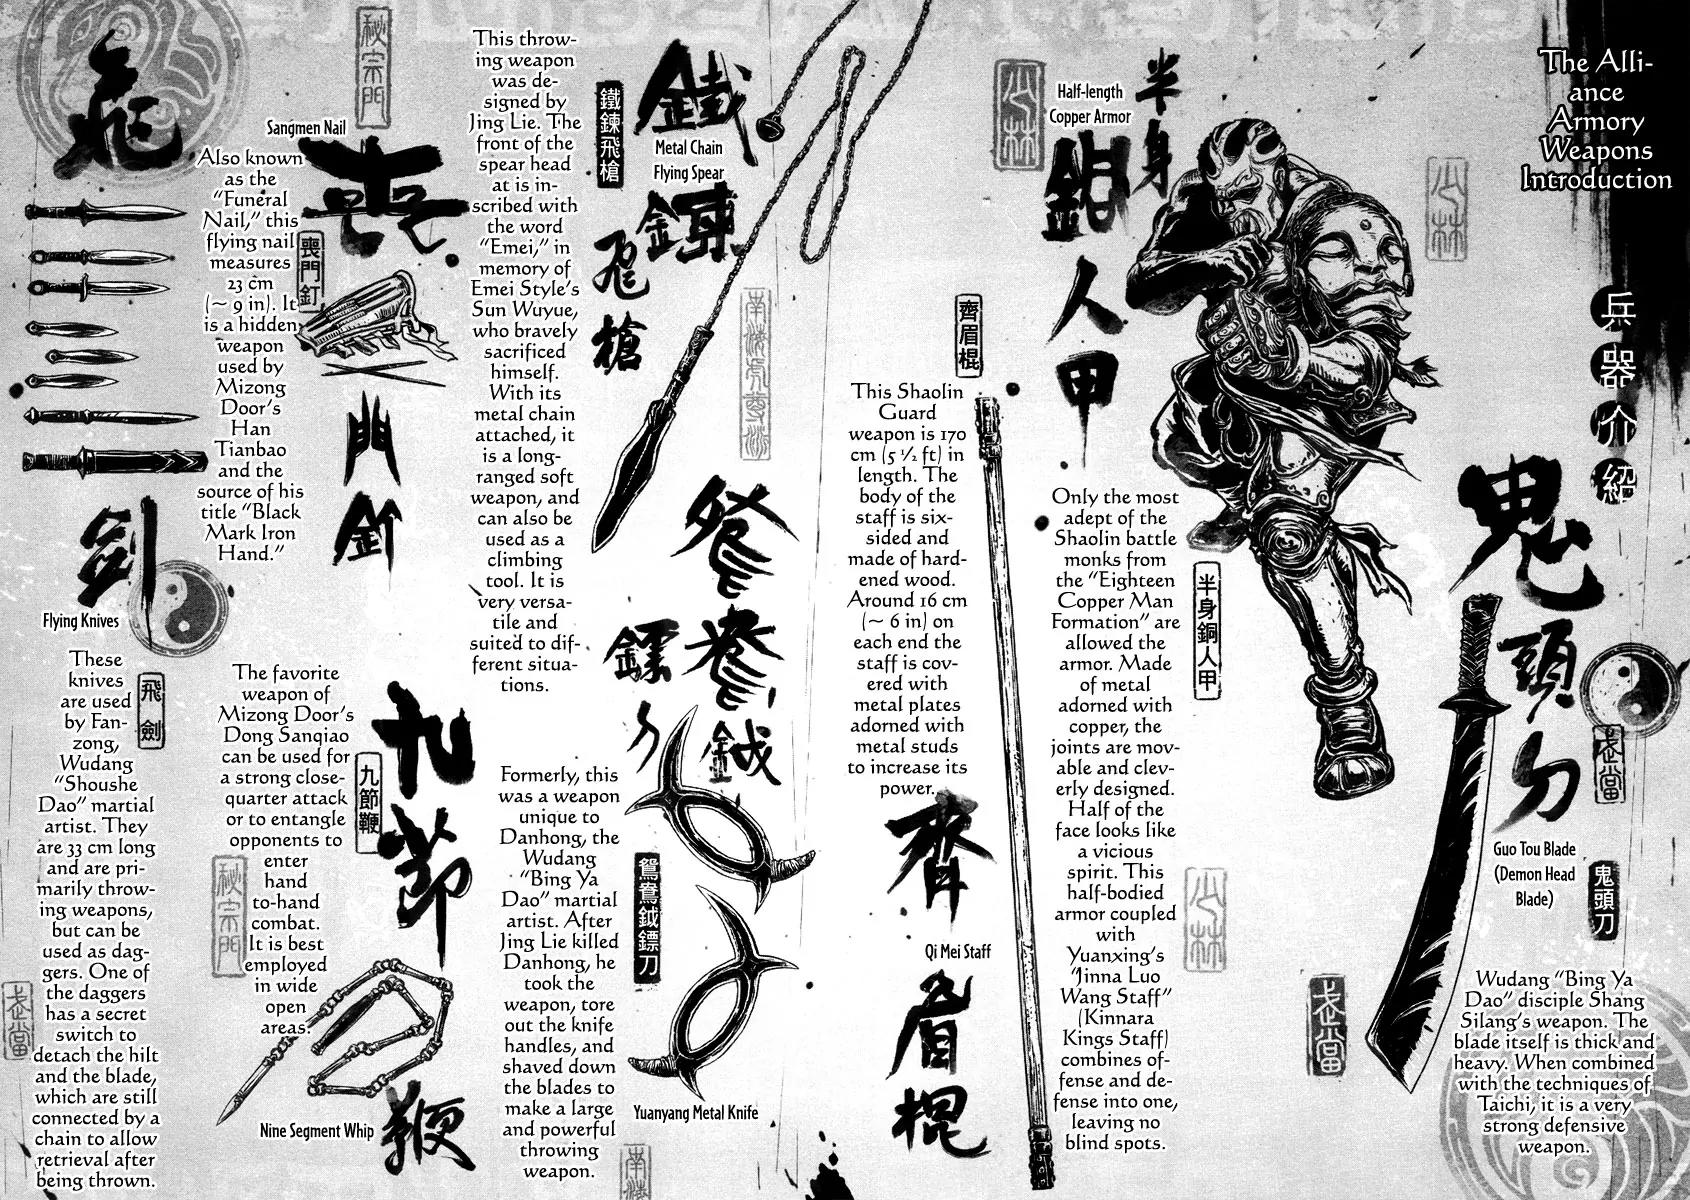 The Alli-
ance
Armory
Weapons
Introduction
兵器介紹
鬼頭刀
Guo Tou Blade
(Demon Head
Blade)
鬼頭刀
武當
Wudang “Bing Ya
Dao” disciple Shang
Silang’s weapon. The
blade itself is thick and
heavy. When combined
with the techniques of
Taichi, it is a very
strong defensive
weapon.
武當
少林
半身
銅人甲
Half-length
Copper Armor
少林
半身銅人甲
Only the most
adept of the
Shaolin battle
monks from
the “Eighteen
Copper Man
Formation” are
allowed the
armor. Made
of metal
adorned with
copper, the
joints are mov-
able and clev-
erly designed.
Half of the
face looks like
a vicious
spirit. This
half-bodied
armor coupled
with
Yuanxing’s
“Jinna Luo
Wang Staff”
(Kinnara
Kings Staff)
combines of-
fense and de-
fense into one,
leaving no
blind spots.
少林
齊眉棍
This Shaolin
Guard
weapon is 170
cm (5 ½ ft) in
length. The
body of the
staff is six-
sided and
made of hard-
ened wood.
Around 16 cm
(~ 6 in) on
each end the
staff is cov-
ered with
metal plates
adorned with
metal studs
to increase its
power.
齊眉棍
Qi Mei Staff
鐵鍊
飛槍
Metal Chain
Flying Spear
鐵鍊飛槍
This throw-
ing weapon
was de-
signed by
Jing Lie. The
front of the
spear head
at is in-
scribed with
the word
“Emei,” in
memory of
Emei Style’s
Sun Wuyue,
who bravely
sacrificed
himself.
With its
metal chain
attached, it
is a long-
ranged soft
weapon, and
can also be
used as a
climbing
tool. It is
very versa-
tile and
suited to dif-
ferent situa-
tions.
鴛鴦鉞
鏢刀
鴛鴦鉞鏢刀
Yuanyang Metal Knife
Formerly, this
was a weapon
unique to
Danhong, the
Wudang
“Bing Ya
Dao” martial
artist. After
Jing Lie killed
Danhong, he
took the
weapon, tore
out the knife
handles, and
shaved down
the blades to
make a large
and powerful
throwing
weapon.
秘宗門
喪門釘
Sangmen Nail
喪門釘
Also known
as the
“Funeral
Nail,” this
flying nail
measures
23 cm
(~ 9 in). It
is a hidden
weapon
used by
Mizong
Door’s
Han
Tianbao
and the
source of his
title “Black
Mark Iron
Hand.”
九節鞭
九節鞭
Nine Segment Whip
The favorite
weapon of
Mizong Door’s
Dong Sanqiao
can be used for
a strong close-
quarter attack
or to entangle
opponents to
enter
hand
to-hand
combat.
It is best
employed
in wide
open
areas.
秘宗門
飛劍
Flying Knives
飛劍
These
knives
are used
by Fan-
zong,
Wudang
“Shoushe
Dao” martial
artist. They
are 33 cm long
and are pri-
marily throw-
ing weapons,
but can be
used as dag-
gers. One of
the daggers
has a secret
switch to
detach the hilt
and the blade,
which are still
connected by a
chain to allow
retrieval after
being thrown.
武當